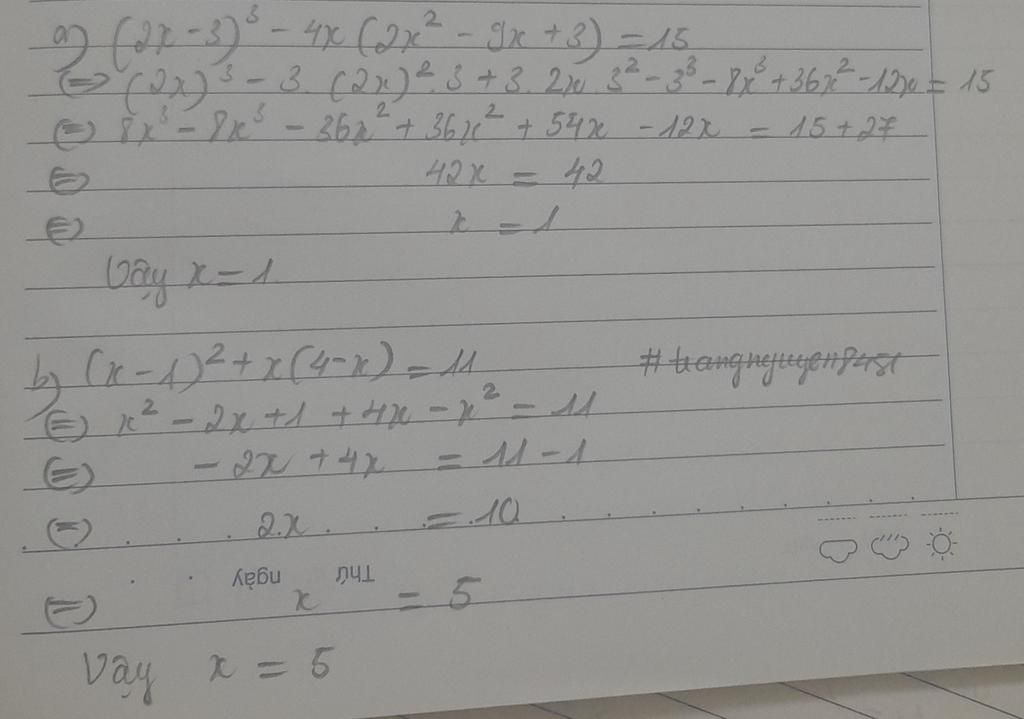 a) (2x - 3)³ - 4x (2x² - 9x + 3) = 15
(=) (2x)³ - 3. (2x)².3 + 3. 2x. 3² - 3³ - 8x³ + 36x² - 12x = 15
(=) 8x³ - 8x³ - 36x² + 36x² + 54x - 12x = 15 + 27
(=) 42x = 42
(=) x = 1
Vậy x = 1
b) (x - 1)² + x(4 - x) = 11
(=) x² - 2x + 1 + 4x - x² = 11
(=) - 2x + 4x = 11 - 1
(=) 2x = 10
Thứ ngày
(=) x = 5
Vậy x = 5